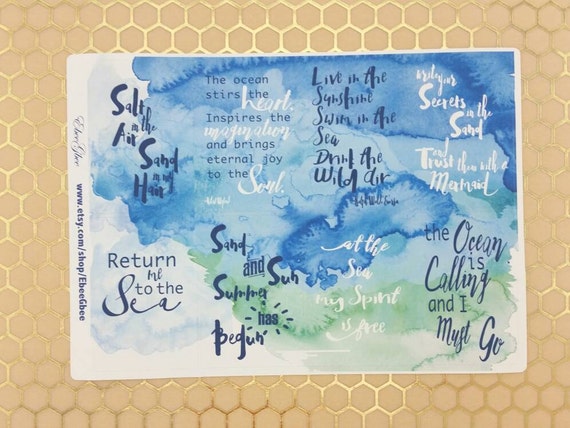 Salt
in the
Air
Sand
in my
Hair
EbeeGbee
www.etsy.com/shop/EbeeGbee
The ocean
stirs the
heart.
Inspires the
imagination
and brings
eternal joy
to the
Soul.
Live in the
Sunshine
Swim in the
Sea
Drink the
Wild air
Write your
Secrets in the
Sand
and
Trust them with a
Mermaid
Return
me
to the
Sea
Sand
and Sun
Summer
has
Begun
at the
Sea
my Spirit
is free
the Ocean
is
Calling
and I
Must
Go